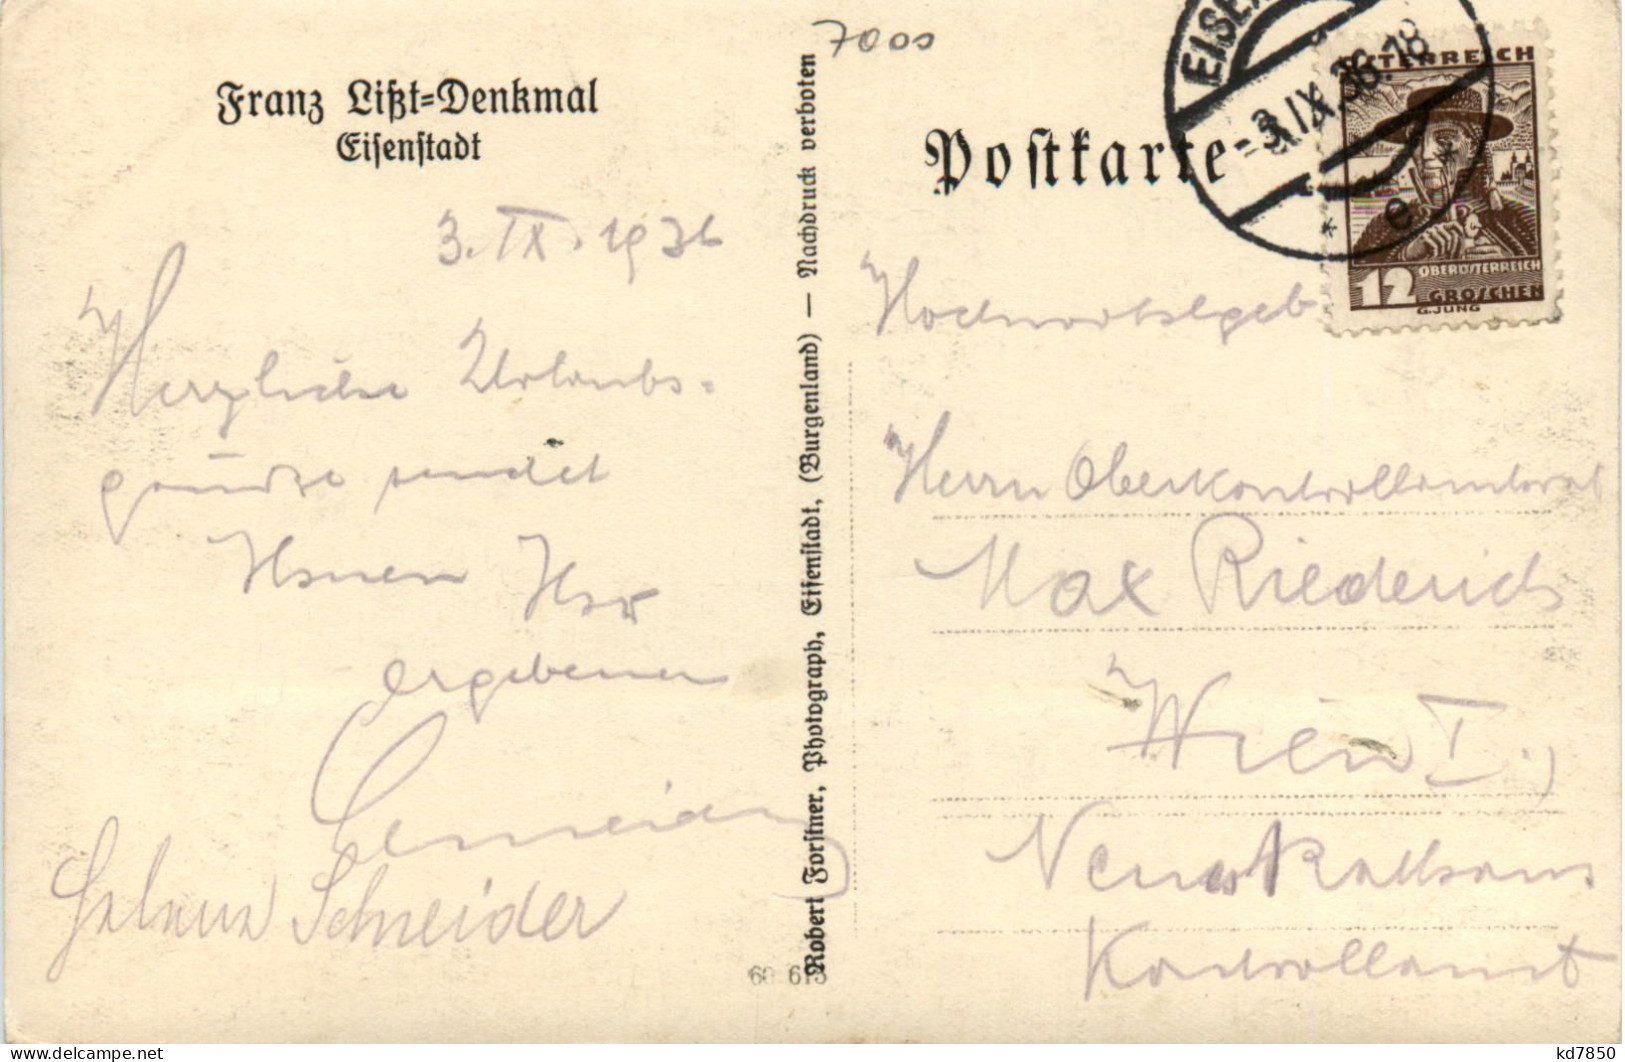 Franz Lißzt=Denkmal
Eisenstadt
3. IX. 1936
Herzliche Urlaubs-
grüsse sendet
Ihnen Ihr
ergebener
Schneider
Robert Forstner, Photograph, Eisenstadt, (Burgenland) — Nachdruck verboten
60 613
7000
Postkarte
EISEN
-3.IX.36.18
* e *
ÖSTERREICH
12
OBERÖSTERREICH
GROSCHEN
G.JUNG
Hochwohlgeb
Herrn Oberkontrollamtsrat
Max Riederich
Wien I.,
Neues Rathaus
Kontrollamt
kd7850